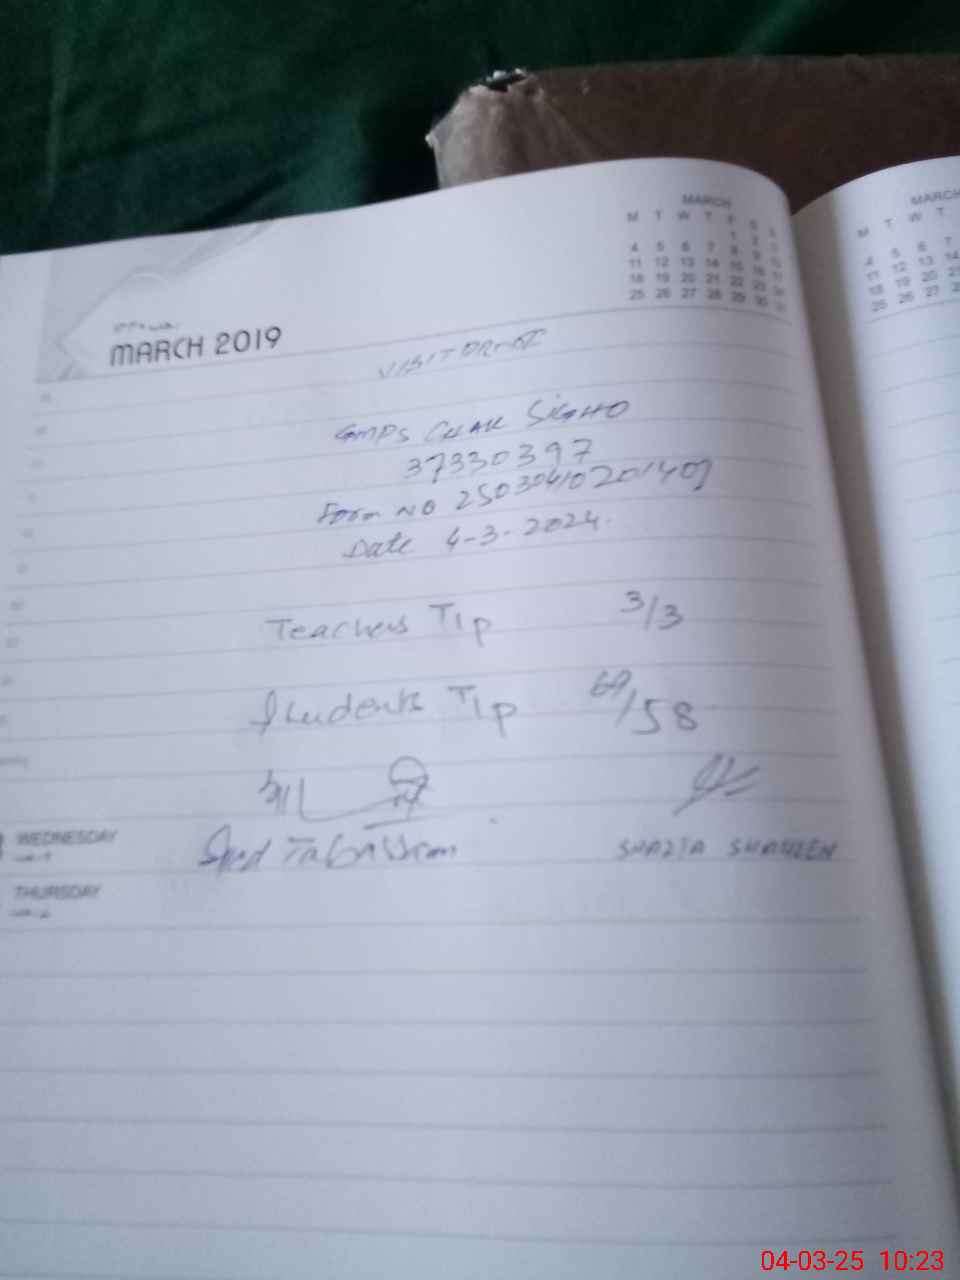 MARCH
M T W T F S
1 2 3
4 5 6 7 8 9 10
11 12 13 14 15 16 17
18 19 20 21 22 23 24
25 26 27 28 29 30 31
MARCH
M T W T
4 5 6 7
11 12 13 14
18 19 20 21
25 26 27 28
MARCH 2019
GMPS CHAK SIGHO
37330397
Form NO 25030410201407
Date 4-3-2024.
Teachers Tip 3/3
Students Tip 69/58
Syed Tabassam
SHAZIA SHAHEEN
WEDNESDAY
THURSDAY
04-03-25 10:23